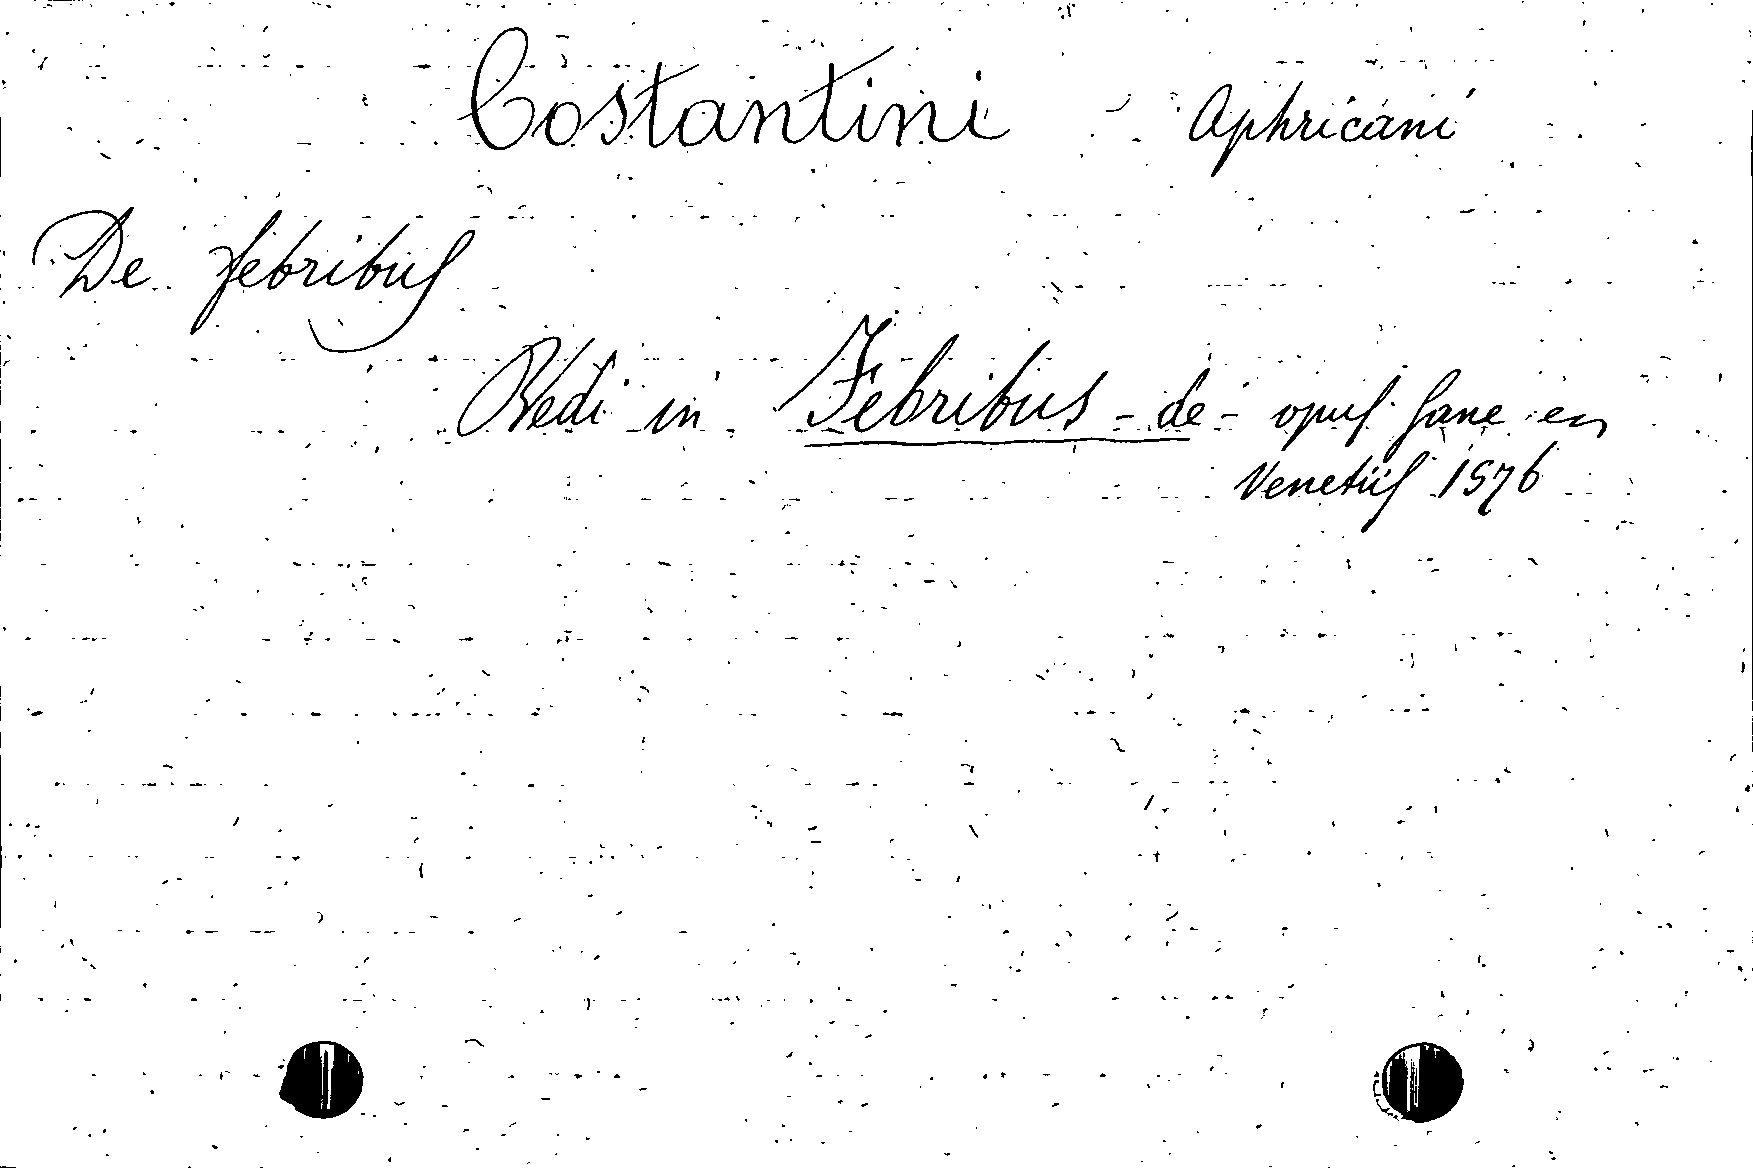 Costantini Aphricani
De febribus
Vedi in Febribus - de - opus sane en
Venetiis 1576